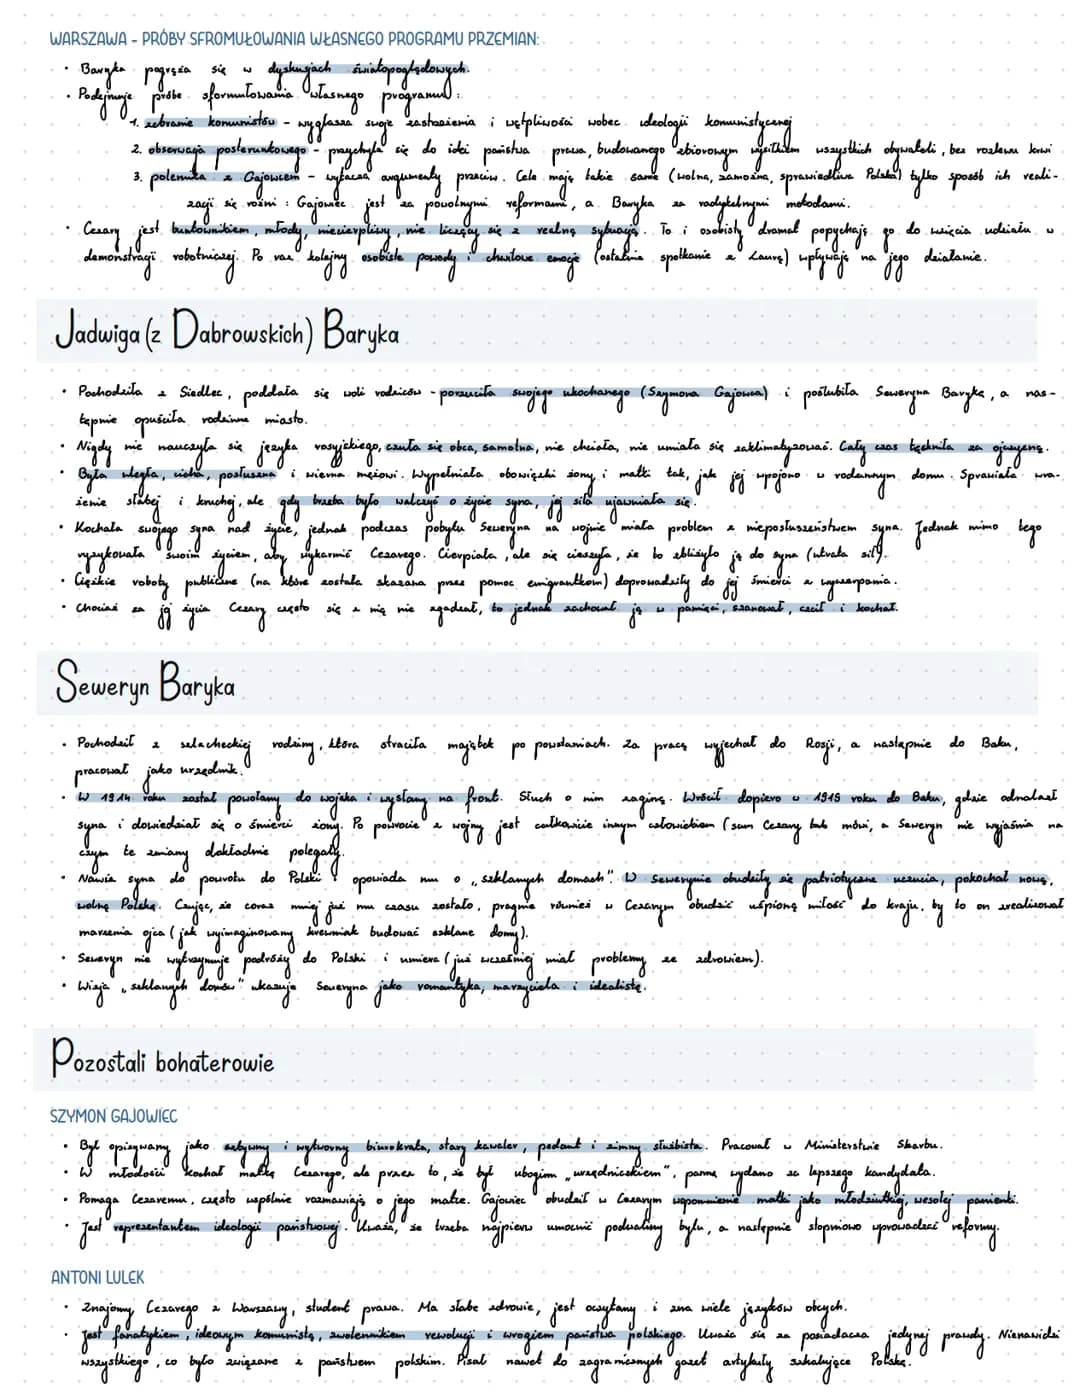 WARSZAWA - PRÓBY SFROMUŁOWANIA WŁASNEGO PROGRAMU PRZEMIAN:
• Baryka pogrąża się w dyskusjach światopoglądowych.
• Podejmuje próbę sformułowania własnego programu:
1. zebranie komunistów - wygłasza swoje zastrzeżenia i wątpliwości wobec ideologii komunistycznej
2. obserwacja posterunkowego - przychyla się do idei państwa prawa, budowanego zbiorowym wysiłkiem wszystkich obywateli, bez rozlewu krwi
3. polemika z Gajowcem - wytacza argumenty przeciw. Cele mają takie same (wolna, zamożna, sprawiedliwa Polska) tylko sposób ich reali-
zacji się różni: Gajowiec jest za powolnymi reformami, a Baryka za radykalnymi metodami.
• Cezary jest buntownikiem, młody, niecierpliwy, nie liczący się z realną sytuacją. To i osobisty dramat popychają go do wzięcia udziału w
demonstracji robotniczej. Po raz kolejny osobiste powody i chwilowe emocje (ostatnie spotkanie z Laurą) wpływają na jego działanie.
Jadwiga (z Dabrowskich) Baryka
• Pochodziła z Siedlec, poddała się woli rodziców - porzuciła swojego ukochanego (Szymona Gajowca) i poślubiła Seweryna Barykę, a nas-
tępnie opuściła rodzinne miasto.
• Nigdy nie nauczyła się języka rosyjskiego, czuła się obca, samotna, nie chciała, nie umiała się zaklimatyzować. Cały czas tęskniła za ojczyzną.
• Była uległa, cicha, posłuszna i wierna mężowi. Wypełniała obowiązki żony i matki tak, jak jej wpojono w rodzinnym domu. Sprawiała wra-
żenie słabej i kruchej, ale gdy trzeba było walczyć o życie syna, jej siła ujawniała się.
• Kochała swojego syna nad życie, jednak podczas pobytu Seweryna na wojnie miała problem z nieposłuszeństwem syna. Jednak mimo tego
ryzykowała swoim życiem, aby wykarmić Cezarego. Cierpiała, ale się cieszyła, że to zbliżyło ją do syna (utrata sił).
• Ciężkie roboty publiczne (na które została skazana przez pomoc emigrantkom) doprowadziły do jej śmierci z wyczerpania.
• Chociaż za jej życia Cezary często się z nią nie zgadzał, to jednak zachował ją w pamięci, szanował, czcił i kochał.
Seweryn Baryka
• Pochodził z szlacheckiej rodziny, która straciła majątek po powstaniach. Za pracą wyjechał do Rosji, a następnie do Baku,
pracował jako urzędnik.
• W 1914 roku został powołany do wojska i wysłany na front. Słuch o nim zaginą. Wrócił dopiero w 1918 roku do Baku, gdzie odnalazł
syna i dowiedział się o śmierci żony. Po powrocie z wojny jest całkowicie innym człowiekiem (sam Cezary tak mówi, a Seweryn nie wyjaśnia na
czym te zmiany dokładnie polegały.
• Nawia syna do powrotu do Polski i opowiada mu o „szklanych domach". W Sewerynie obudziły się patriotyczne uczucia, pokochał nową,
wolną Polskę. Czując, że coraz mniej już mu czasu zostało, pragnie również w Cezarym obudzić uśpioną miłość do kraju, by to on zrealizował
marzenia ojca (jak wyimaginowany krewniak budować szklane domy).
• Seweryn nie wytrzymuje podróży do Polski i umiera (już wcześniej miał problemy ze zdrowiem).
• Wizja „szklanych domów" ukazuje Seweryna jako romantyka, marzyciela i idealistę.
Pozostali bohaterowie
SZYMON GAJOWIEC
• Był opisywany jako sztywny i wytworny biurokrata, stary kawaler, pedant i zimny służbista. Pracował w Ministerstwie Skarbu.
• W młodości kochał matkę Cezarego, ale przez to, że był ubogim „urzędniczkiem", pannę wydano za lepszego kandydata.
• Pomaga Cezaremu, często wspólnie rozmawiają o jego matce. Gajowiec obudził w Cezarym wspomnienie matki jako młodziutkiej, wesołej panienki.
• Jest reprezentantem ideologii państwowej. Uważa, że trzeba najpierw umocnić podwaliny bytu, a następnie stopniowo wprowadzać reformy.
ANTONI LULEK
• Znajomy Cezarego z Warszawy, student prawa. Ma słabe zdrowie, jest oczytany i zna wiele języków obcych.
• Jest fanatykiem, ideowym komunistą, zwolennikiem rewolucji i wrogiem państwa polskiego. Uważa się za posiadacza jedynej prawdy. Nienawidzi
wszystkiego, co było związane z państwem polskim. Pisał nawet do zagranicznych gazet artykuły szkalujące Polskę.